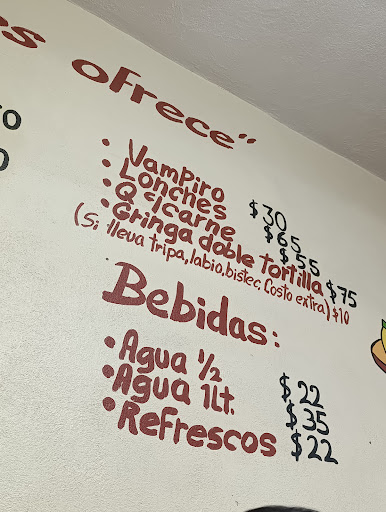 es ofrece"
• Vampiro $30
• Lonches $65
• Q c/carne $55
• Gringa doble tortilla $75
(Si lleva tripa, labio, bistec, Costo extra) $10
Bebidas:
• Agua 1/2 $22
• Agua 1Lt. $35
• Refrescos $22